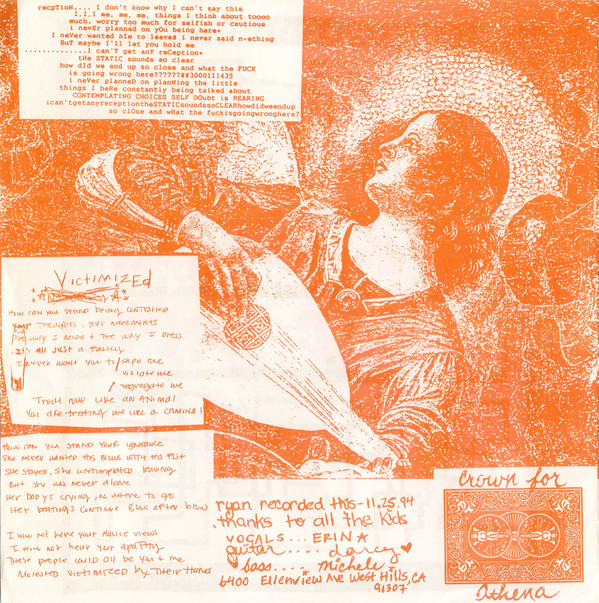 recpTioN.... I don't know why I can't say this
I,I,I me, me, me, things I think about toooo
much. worry too much for selfish or cautious
i nevEr planned on yOu being here*
I neVer wanted hIm to leave# i never said n-ething
BuT maybe I'll let you hold me
.............I can'T get anY reCeption*
tHe STATIC sounds so clear
how dId we end up so close and what the FUCK
is going wrong here??????##3000111435
i neVer planneD on planNing the little
things I heRe constantly being talked about
CONTEMPLATING CHOICES SELF DOubt is REARING
ican'tgetanyreceptiontheSTATICsoundssoCLEARhowdidweendup
so clOse and wHat the fuckisgoingwronghere?
VICTIMIZEd
How can you stand being controlled
your thoughts, your movements
The way I move + The way I Dress
It's all Just a Policy
I never want you to / rape me
violate me
/ segregate me
Treat me like an ANimal
You are treating me like a criminal
How can you stand your ignorance
She never wanted this Blows with his fist
She stayed, she contemplated leaving
But she was never alone
Her baby's crying, no where to go
Her beatings continue Blow after blow
I will not hear your Justice views
I will not hear your apathy
These people could all be you + me
Molested victimized by Their Hands
ryan recorded this - 11.25.94
thanks to all the kids
VOCALS... ERIN★
guitar.... darcy ♥
bass.... Michele
6400 Ellenview Ave West Hills, CA
91307
Crown for
Athena